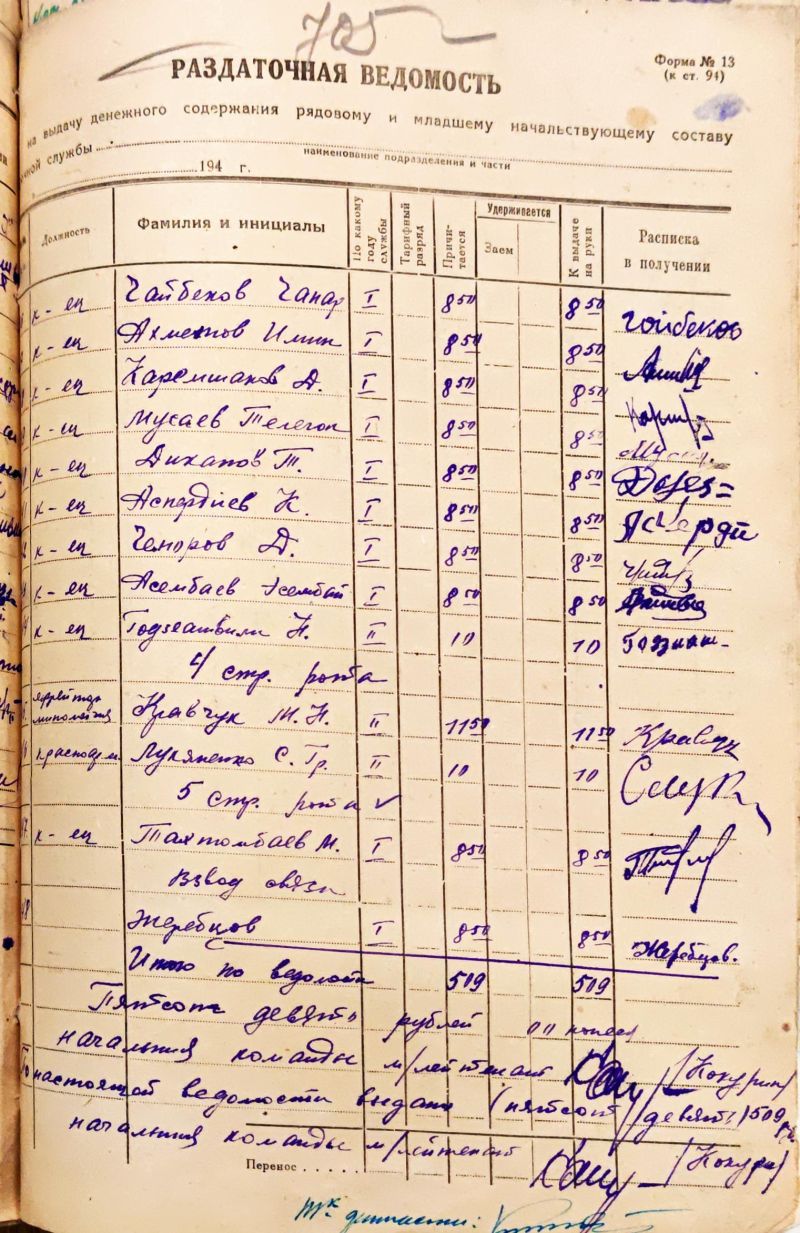 705
РАЗДАТОЧНАЯ ВЕДОМОСТЬ
Форма № 13
(к ст. 94)
на выдачу денежного содержания рядовому и младшему начальствующему составу
службы
наименование подразделения и части
194 г.
Должность Фамилия и инициалы По какому году службы Тарифный разряд Причитается Удерживается Заем К выдаче на руки Расписка в получении
к-ец Чайбеков Чапар I 8 50 8 50 Чойбеков
к-ец Ахметов Имин I 8 50 8 50
к-ец Каремшаков Д. I 8 50 8 50
к-ец Мусаев Телеген I 8 50 8 50
к-ец Диканов Т. I 8 50 8 50
к-ец Аспердиев К. I 8 50 8 50 Асперди
к-ец Чемиров Д. I 8 50 8 50
к-ец Асембаев Эсембай I 8 50 8 50
к-ец Годзеашвили Н. II 10 10
4 стр. рота
ефрейтор Кравчук М. Н. II 11 50 11 50 Кравчук
красноарм. Лукяненко С. Гр. II 10 10
5 стр. рота ✓
17 к-ец Тахтомбаев М. I 8 50 8 50
Взвод связи
18 Жеребцов I 8 50 8 50 Жеребцов.
Итого по ведомости 509 509
Пятсот девять рублей 00 копеек
Начальник команды м/лейтенант /Кокурин/
По настоящей ведомости выдано (пятсот девять) 509
Начальник команды м/лейтенант /Кокурин/
Перенос